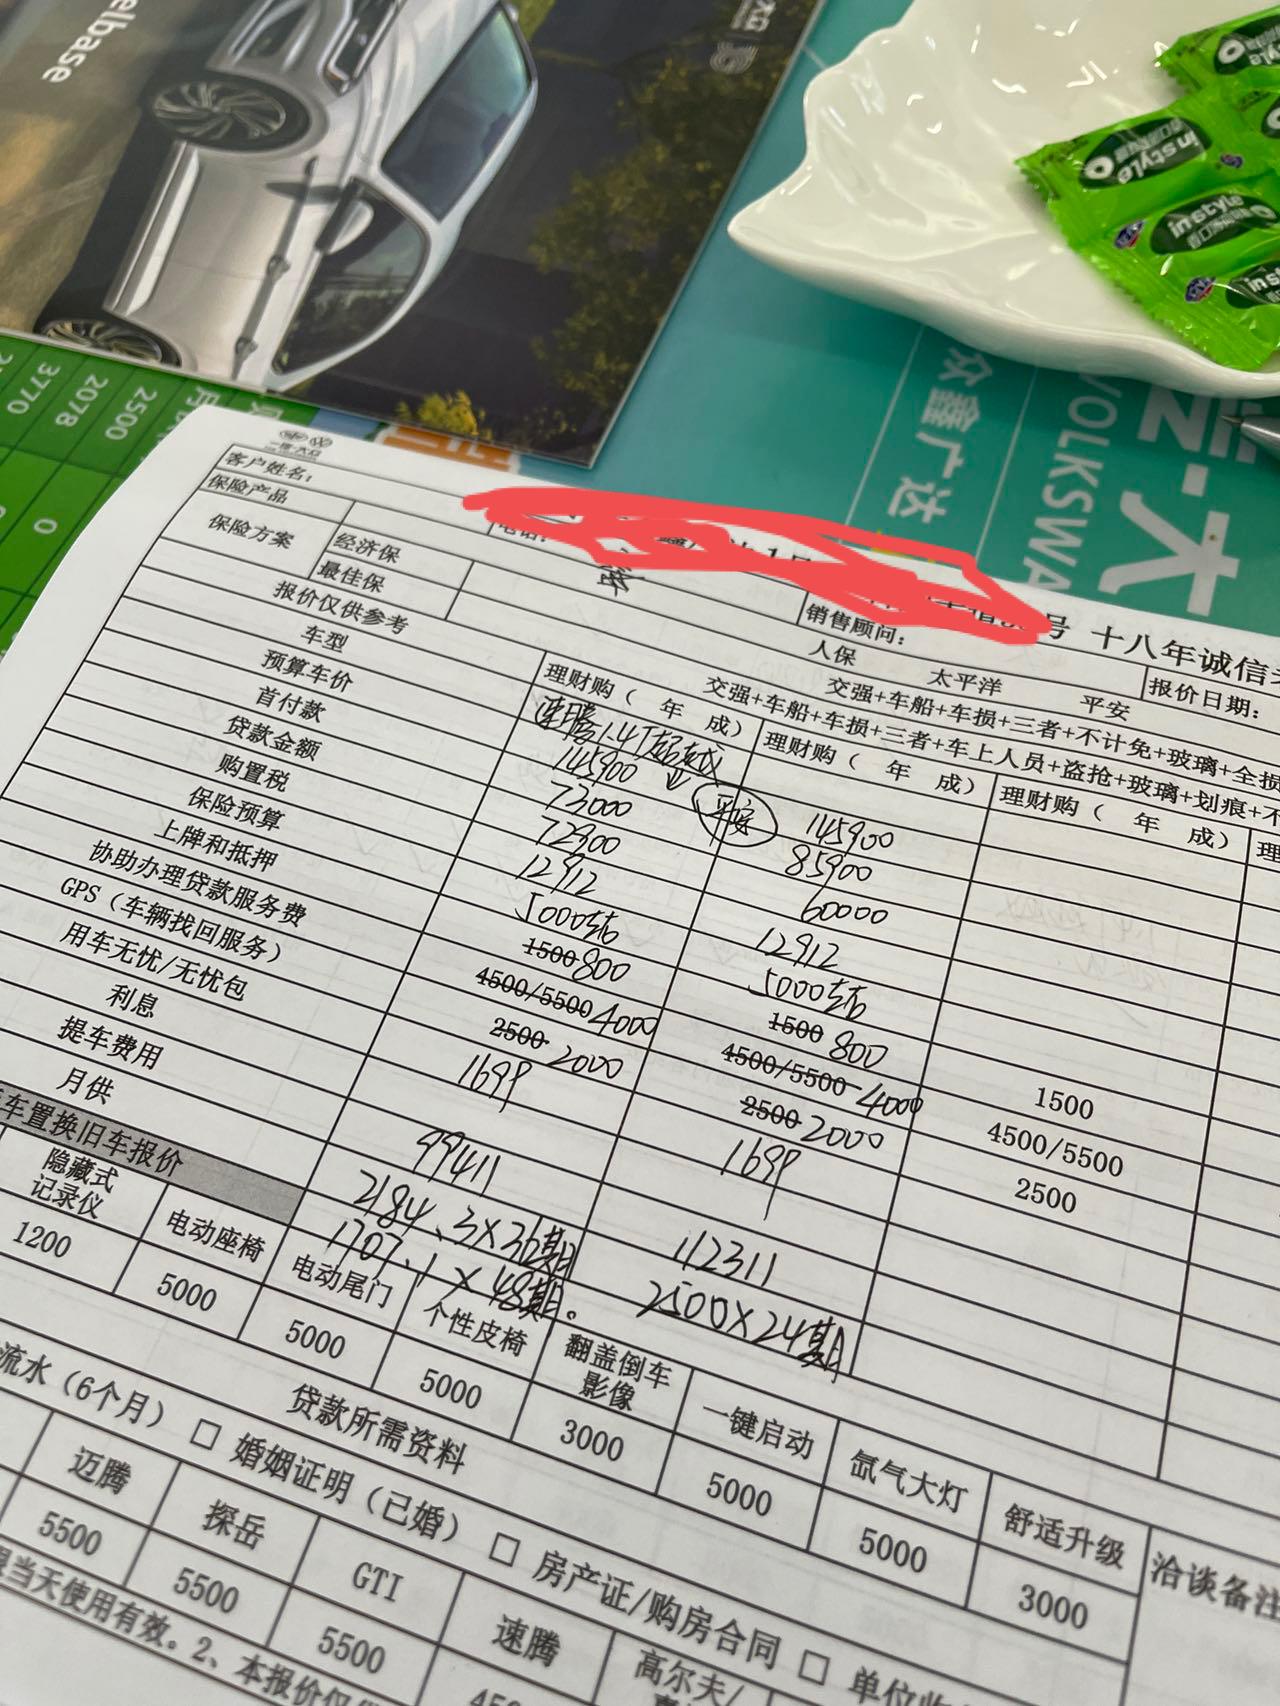 elbase
大众
in style
in style
in style
3770
2078
2500
0
众鑫广达
一汽-大
VOLKSWA
一汽-大众
号 十八年诚信
客户姓名：
电话：
销售顾问：
报价日期：
保险产品
人保 太平洋 平安
保险方案
经济保
交强+车船+车损+三者+不计免+玻璃+全损
最佳保
交强+车船+车损+三者+车上人员+盗抢+玻璃+划痕+不
报价仅供参考
理财购（ 年 成）
理财购（ 年 成）
理财购（ 年 成）
车型
速腾1.4T超越
平安
预算车价
145900
145900
首付款
73000
85900
贷款金额
72900
60000
购置税
12912
12912
保险预算
5000
5000
上牌和抵押
1500 800
1500 800
1500
协助办理贷款服务费
4500/5500 4000
4500/5500 4000
4500/5500
GPS（车辆找回服务）
2500 2000
2500 2000
2500
用车无忧/无忧包
1699
1699
利息
提车费用
99411
112311
月供
2184.3×36期
1707.1×48期。
2500×24期
车置换旧车报价
隐藏式记录仪
电动座椅
电动尾门
个性皮椅
翻盖倒车影像
一键启动
氙气大灯
舒适升级
洽谈备注
1200
5000
5000
5000
3000
5000
5000
3000
贷款所需资料
流水（6个月） □ 婚姻证明（已婚） □ 房产证/购房合同 □ 单位收
迈腾
探岳
GTI
速腾
高尔夫/
5500
5500
5500
当天使用有效。2、本报价仅